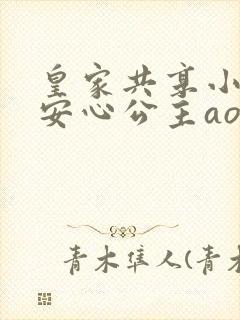 皇家共享小
安心公主ao
青木隼人(青木